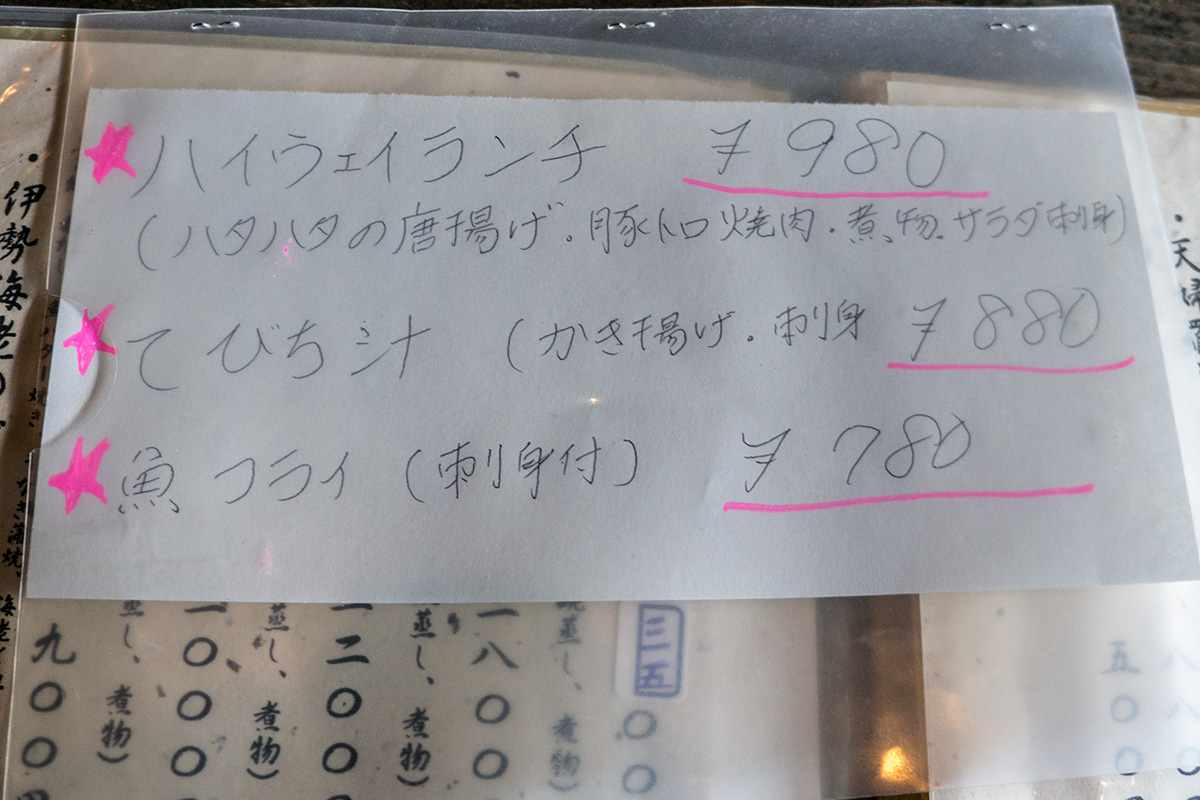 ハイウェイランチ ¥980
(ハタハタの唐揚げ。豚トロ焼肉・煮物。サラダ刺身)
てびち汁 (かき揚げ。刺身 ¥880
魚フライ (刺身付) ¥780
・伊勢海老の
・天婦羅
九〇〇
蒸し、煮物)
一〇〇〇
蒸し、煮物)
一二〇〇
蒸し、煮物)
一八〇〇
蒸し、煮物)
三五〇〇
五〇〇